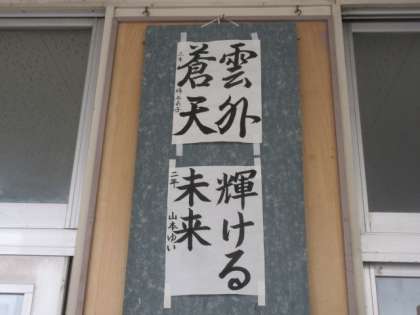 雲外
蒼天
輝ける
未来
二年 山本ゆい